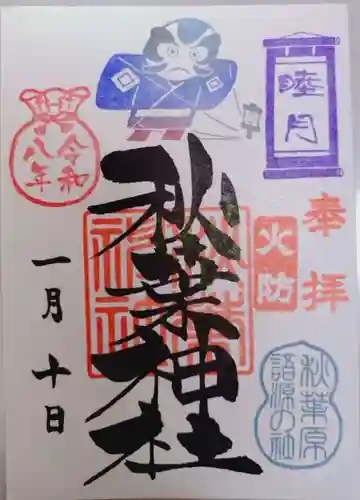 奉拝
火防
睦月
秋葉神社
秋葉神社
令和
八年
一月十日
秋葉原
諸源の社